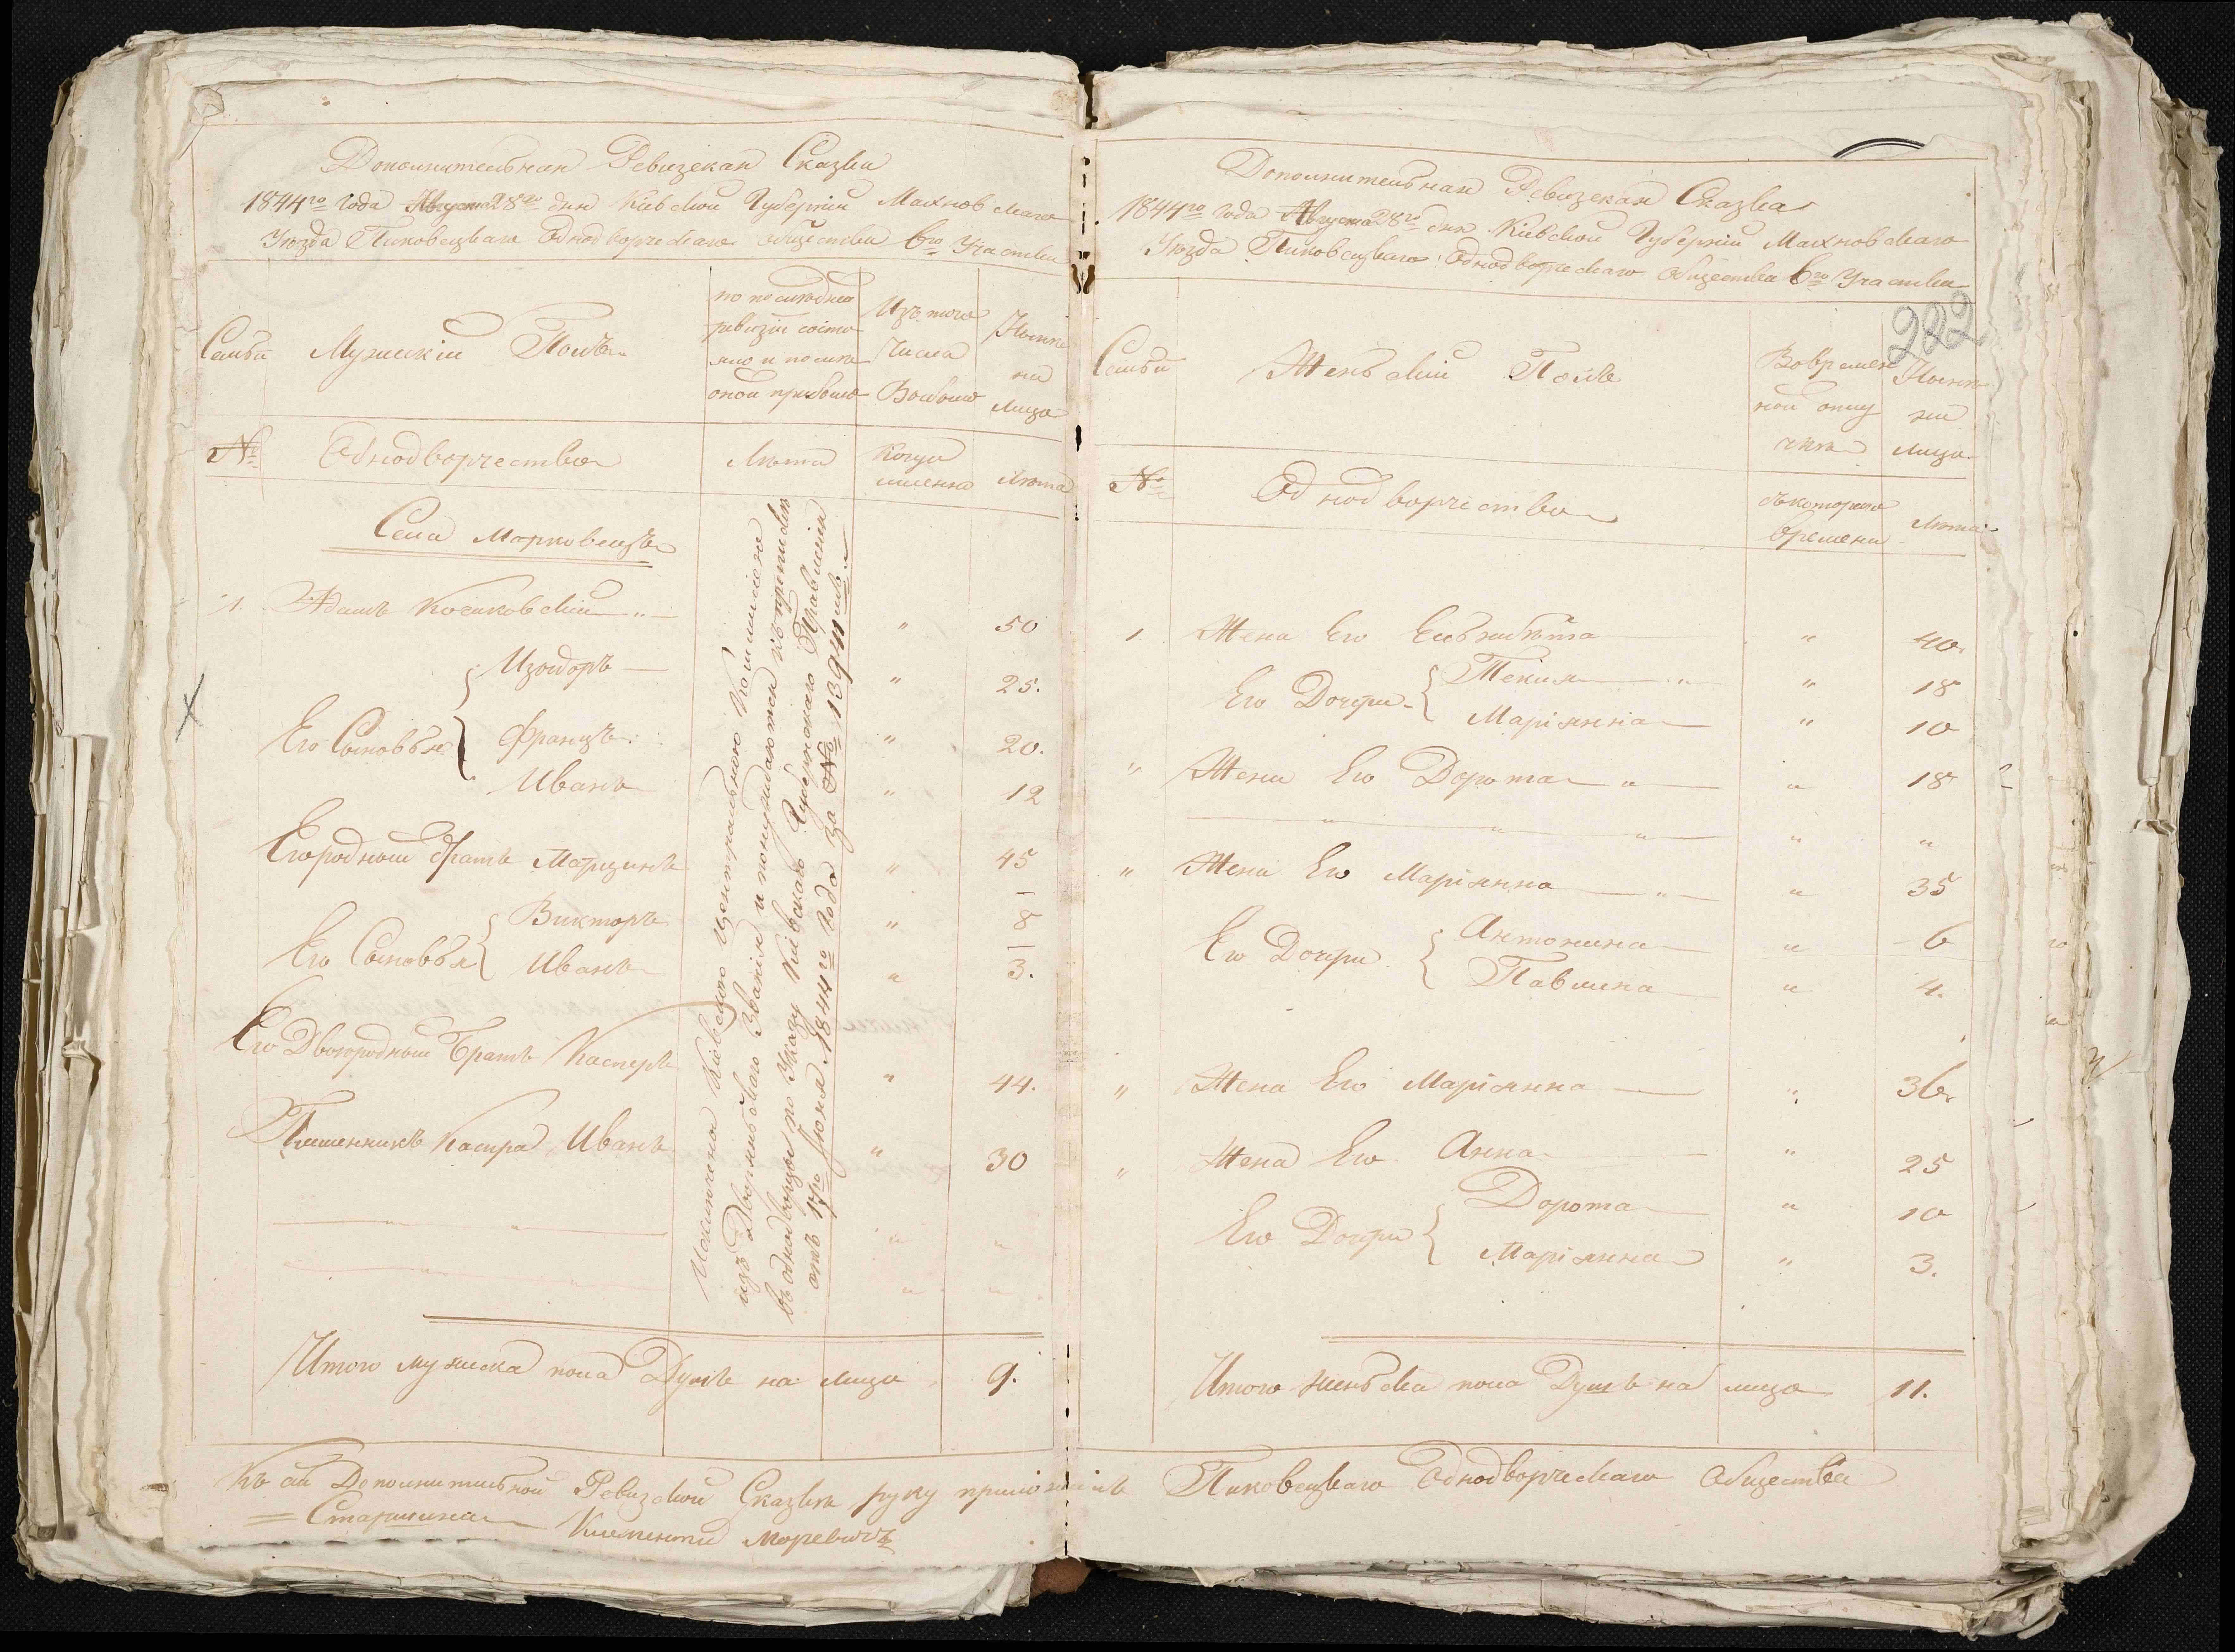 Дополнительная Ревизская Сказка
1844го года Августа 28го дня Кіевской Губерніи Махновскаго
Уѣзда Пиковецкаго Однодворческаго общества 6го Участка
Семьи
Мужескій Полъ
по послѣдней
ревизіи состо
яло и после
оной прибыло
Изъ того
числа
Выбыло
Нынѣ
на
лицо
№
Однодворчество
Лѣта
Когда
именно
Лѣта
Села Марковецъ
1. Адамъ Кочиковскій " 50
Изыдоръ " 25.
Его Сыновья Францъ " 20.
Иванъ " 12
Его родный братъ Марцинъ " 45
Викторъ " 8
Его Сыновья Иванъ " 3.
Его Двоюродный Братъ Касперъ " 44.
Племенникъ Каспра Иванъ " 30
Изключена Кіевскою Центральною Коммисіею
изъ Дворянскаго Званія и понуждаются къ припискѣ
въ однодворцы по Указу Кіевскаго Губернскаго Правленія
отъ 17го Іюня 1844го Года за №
Итого мужеска пола Душъ на лицо 9.
Дополнительная Ревизская Сказка
1844го года Августа 28го дня Кіевской Губерніи Махновскаго
Уѣзда Пиковецкаго Однодворческаго Общества 6го Участка
222
Семьи
Женьскій Полъ
Во времен
ной отлу
чкѣ
Нынѣ
на
лицо
№
Однодворчество
съ котораго
времени
Лѣта
1. Жена Его Ельжбѣта " 40.
Его Дочери Текля " 18
Маріянна " 10
" Жена Его Дорота " 18
" Жена Его Маріянна " 35
Его Дочери Антонина " 6
Павлина " 4.
" Жена Его Маріянна " 36
" Жена Его Анна " 25
Его Дочери Дорота " 10
Маріянна " 3.
Итого женьска пола Душъ на лицо 11.
Къ сей Дополнительной Ревизской Сказкѣ руку приложилъ Пиковецкаго Однодворческаго Общества
Старшина Климентій Моревичъ